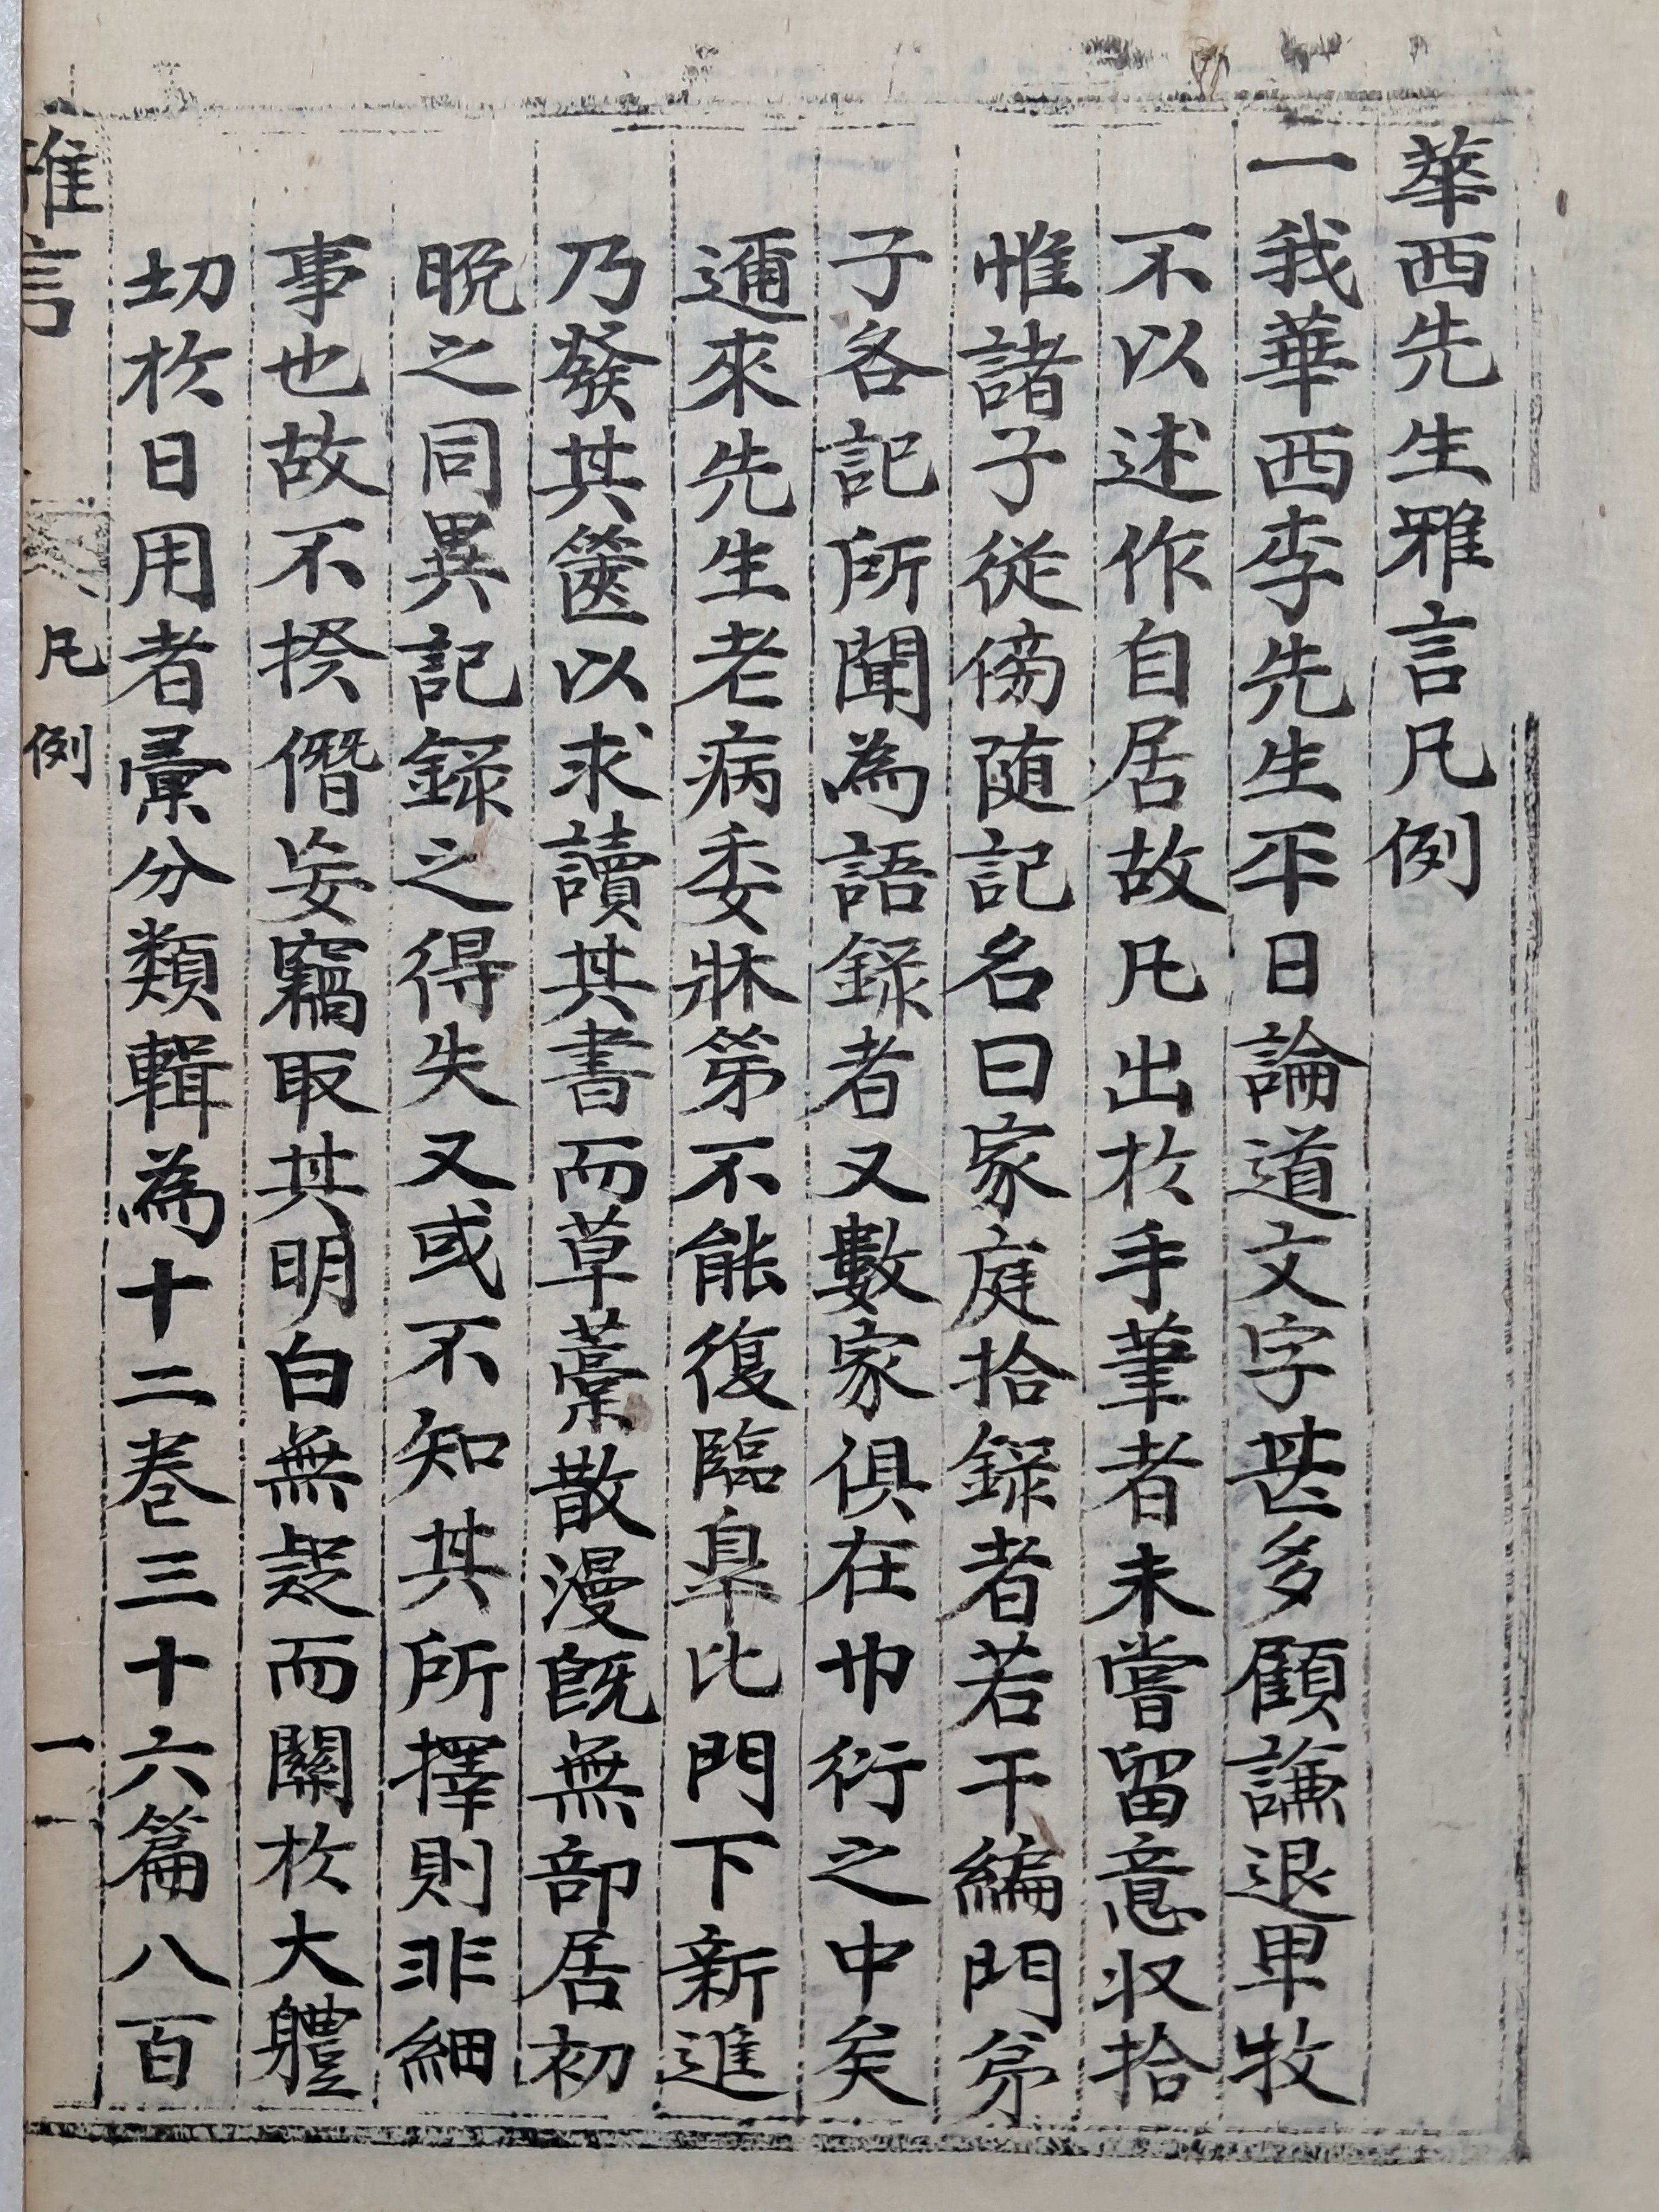 華西先生雅言凡例
一我華西李先生平日論道文字甚多顧謙退卑牧
不以述作自居故凡出於手筆者未嘗留意収拾
惟諸子從傍随記名曰家庭拾録者若干編門弟
子各記所聞為語録者又數家俱在巾衍之中矣
邇來先生老病委牀第不能復臨臯比門下新進
乃發其篋以求讀其書而草藁散漫旣無部居初
晩之同異記録之得失又或不知其所擇則非細
事也故不揆僭妄竊取其明白無疑而關於大軆
切於日用者彙分類輯為十二巻三十六篇八百
雅言 凡例 一